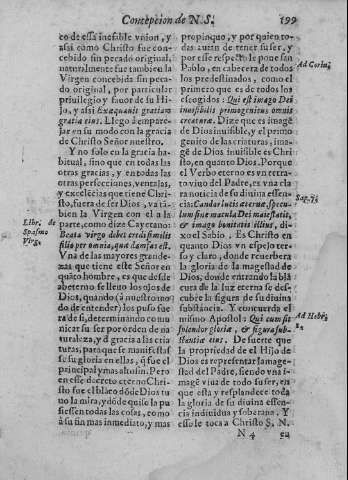 Concepcion de N.S. 199
co de essa inefable vnion, y
assi como Christo fue con-
cebido sin pecado original,
naturalmente fue tambien la
Virgen concebida sin peca
do original, por particular
priuilegio y fauor de su Hi-
jo, y assi Exæquauit gratiam
gratia eius. Llego à empare-
jar en su modo con la gracia
de Christo Señor nuestro.
Y no solo en la gracia ha-
bitual, sino que en todas las
otras gracias, y en todas las
otras perfecciones, ventajas,
y excelẽcias que tiene Chris-
to, fuera de ser Dios, va tã-
bien la Virgen con el a la
parte, como dize Cayetano:
Beata virgo debet credi similis
filio per omnia, quæ damsas est.
Vna de las mayores grande-
zas que tiene este Señor en
quãto hombre, es que desde
abeterno se lleuo los ojos de
Dios, quando (à nuestro mo
do de entender) los puso fue
ra de si, determinando comu
nicar su ser por orden de na-
turaleza, y de gracia a las cria
turas, para que se manifestas-
se su gloria en ellas, y fue el
principal y mas alto fin. Pero
en esse decreto eterno Chris-
to fue el blãco dõde Dios tu
uo la mira, y dõde quiso la pu
siessen todas las cosas, como
a su fin mas inmediato, y mas
Libr. de
Spasmo
Virg.
propinquo, y por quien to-
das auian de tener su ser, y
por esse respecto le pone san
Pablo, en cabecera de todos
los predestinados, como el
primero que es de todos los
escogidos: Qui est imago Dei
inuisibilis primogenitus omnis
creaturæ. Dize que es imagẽ
de Dios inuisible, y el primo
genito de las criaturas, imagẽ
de Dios inuisible es Chris-
to, en quanto Dios. Porque
el Verbo eterno es vn retra-
to viuo del Padre, es vna cla
ra noticia de su diuina essen-
cia: Candor lucis æternæ, specu-
lum sine macula Dei maiestatis,
& imago bonitatis illius, di-
xo el Sabio. Es Christo en
quanto Dios vn espejo ter-
so y claro, donde reuerbera
la gloria de la magestad de
Dios, donde entrando la blã
cura de la luz eterna se des-
cubre la figura de su diuina
substãcia. Y concuerda el
mismo Apostol: Qui cum sit
splendor gloriæ, & figura sub-
stantiæ eius. De suerte que
la propiedad de el Hijo de
Dios es representar la mage-
stad del Padre, siendo vna i-
magẽ viua de todo su ser, en
que està y resplandece toda
la gloria de su diuina essen-
cia indiuidua y soberana. Y
esso le toca a Christo S. N.
Ad Corin.
Sap. 7.
Ad Hebr.
N 4 en